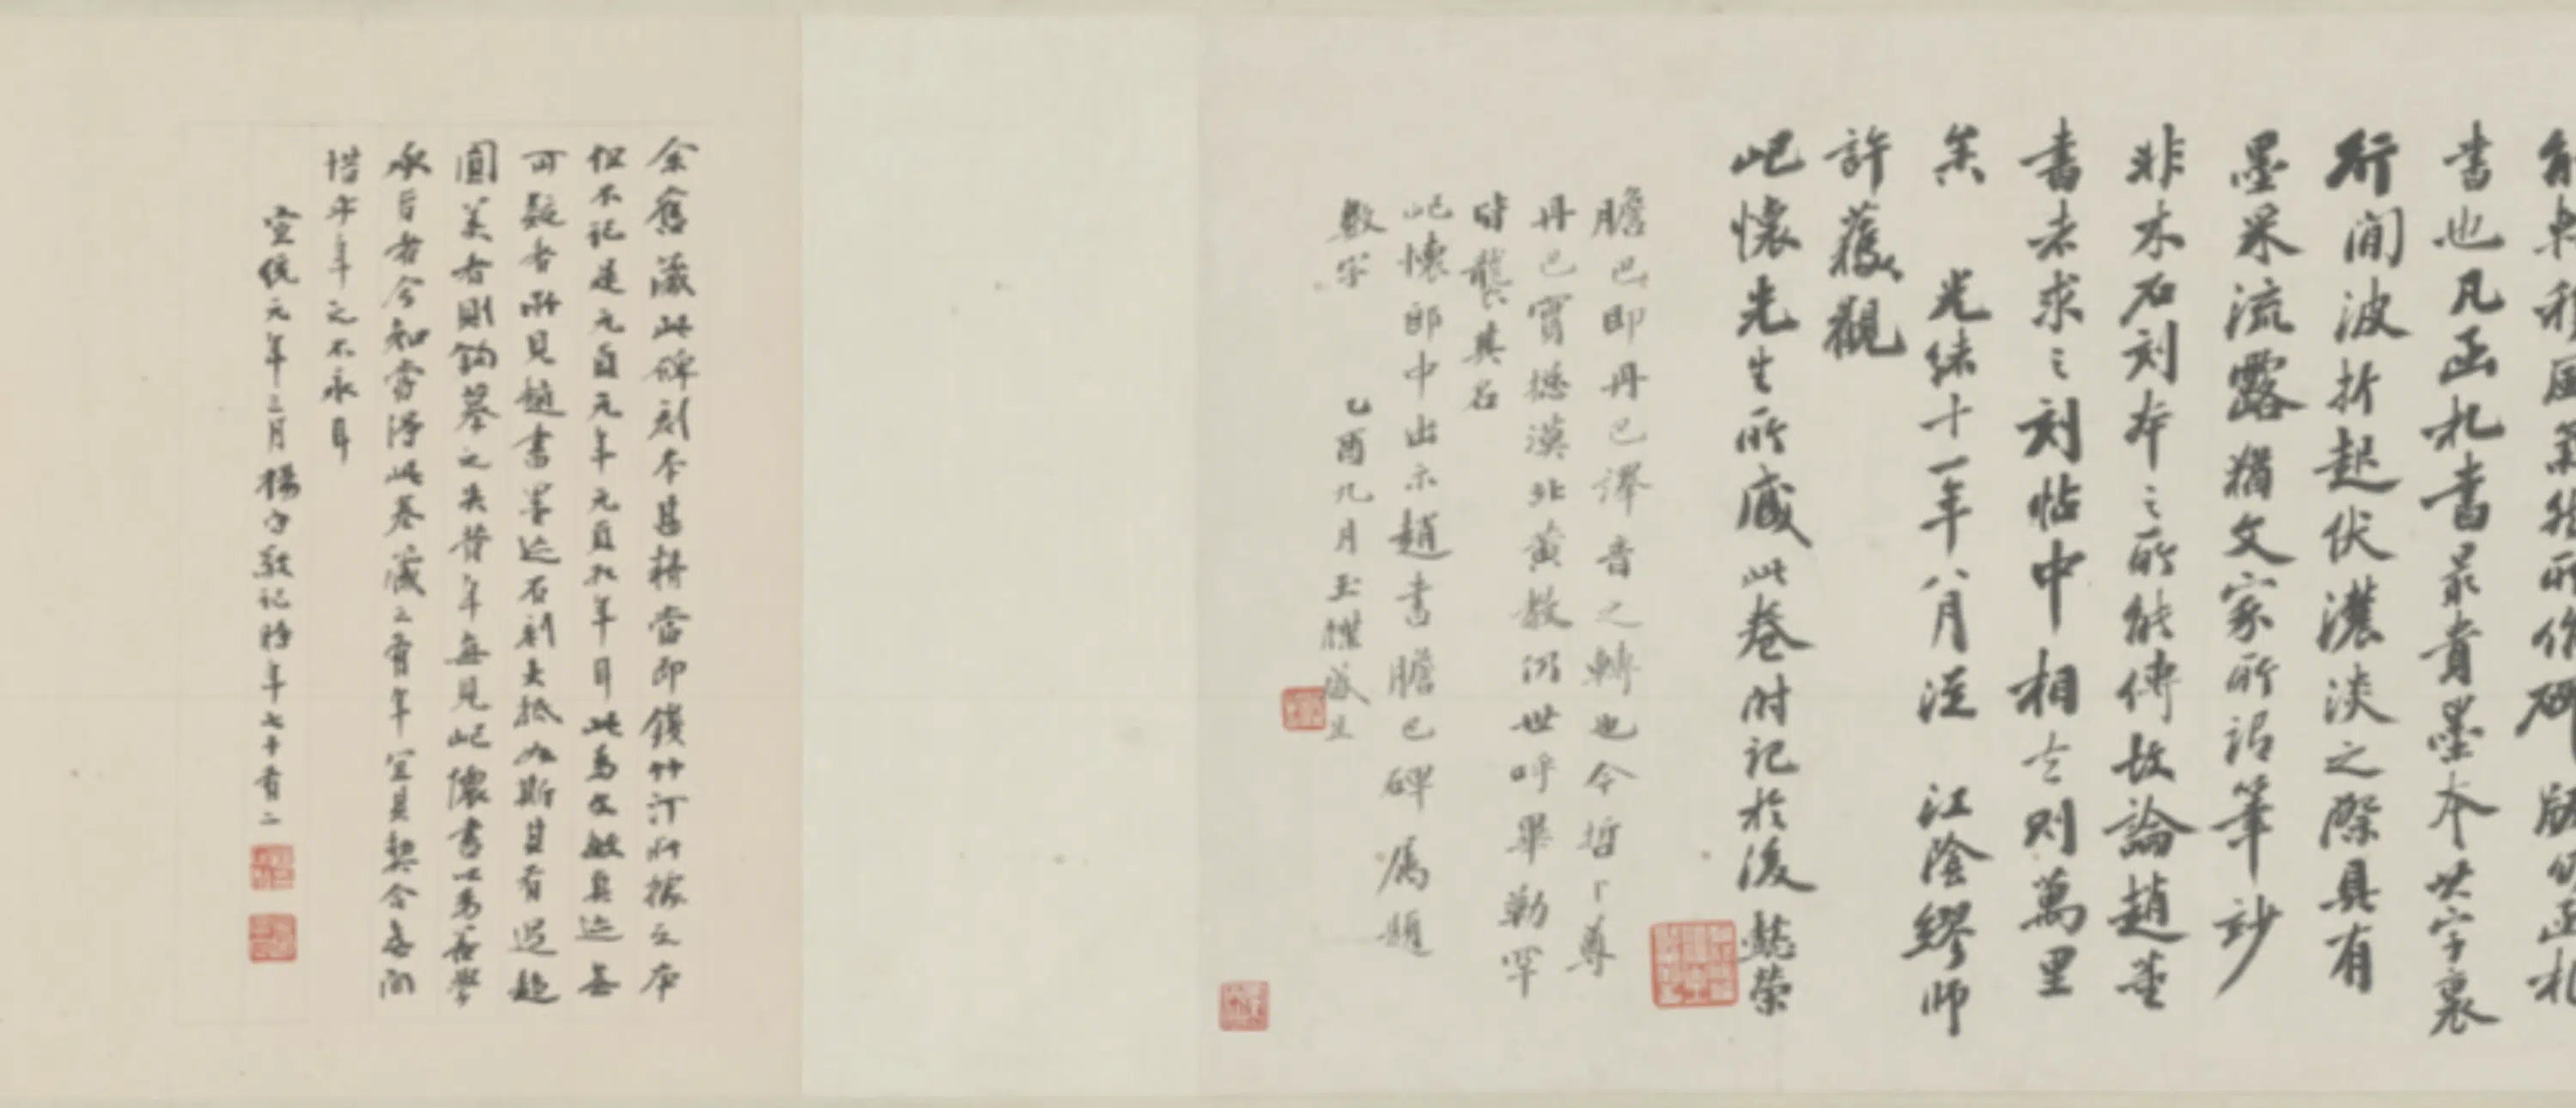 書也凡函札書最貴墨本其字裏
行間波折起伏濃淡之際具有
墨采流露猶文家所謂筆妙
非木石刻本之所能傳故論趙董
書者求之刻帖中相去則萬里
矣 光緒十一年八月從 江陰繆師
許獲觀
屺懷先生所藏此卷附記於後 懿榮
膽巴即丹巴譯音之轉也今哲卜尊
丹巴實據漠北黃教仍世呼畢勒罕
時襲其名
屺懷郎中出示趙書膽巴碑屬題
數字 乙酉九月 盛昱
余舊藏此碑刻本甚精當即鏤竹汀所據之本
但不記是元自元年元貞九年耳此為文敏真迹無
可疑者所見趙書墨迹石刻大抵如斯其有過趙
圓美者則鈎摹之失昔年每見屺懷書以為善學
承旨者今知嘗得此卷藏之有年宜其契合無間
惜年之不永耳
宣統元年三月楊守敬記時年七十有一